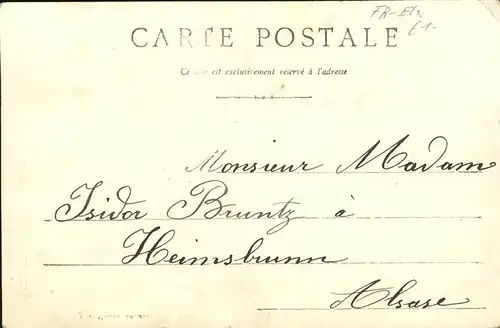 FR-Els
£1-
CARTE POSTALE
Ce côté est exclusivement réservé à l'adresse
Monsieur Madam
Isidor Bruntz à
Heimsbrunn
Alsase